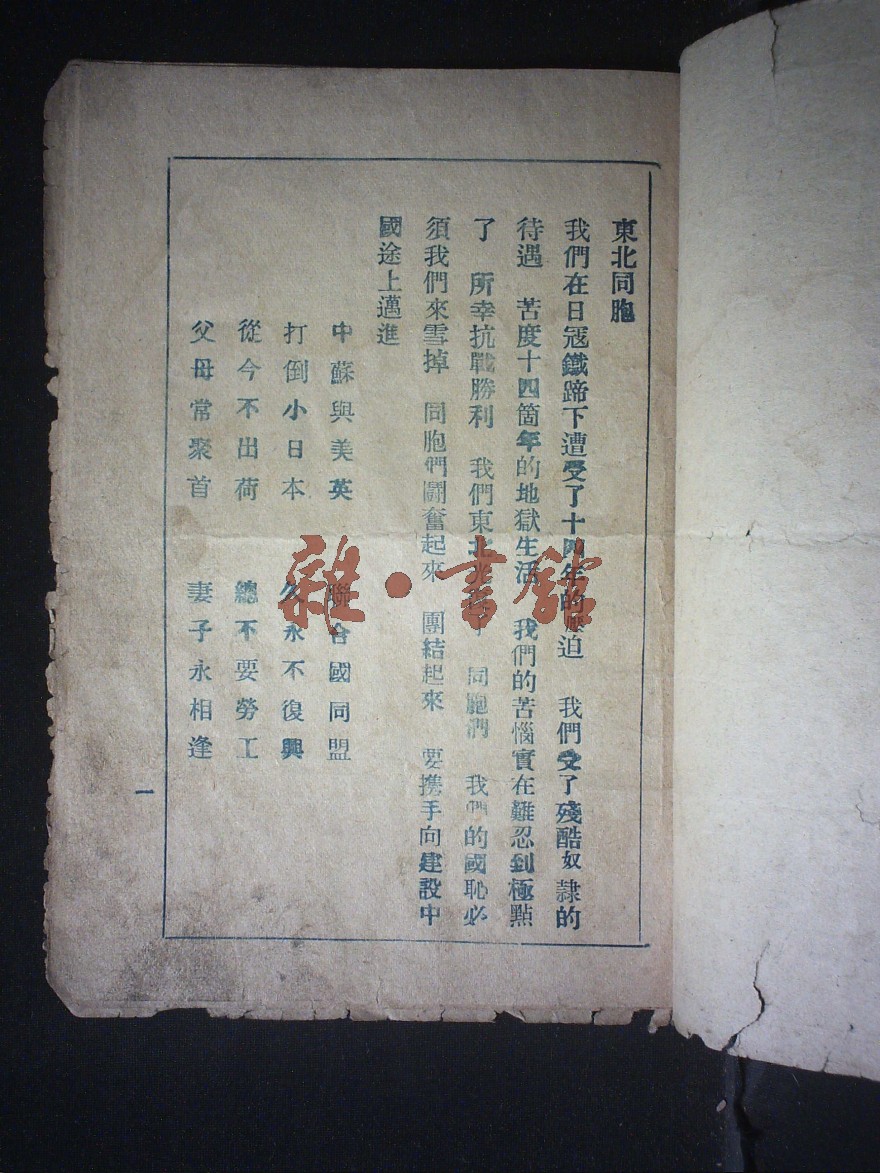 東北同胞
我們在日冦鐵蹄下遭受了十四年的壓迫　我們受了殘酷奴隸的
待遇　苦度十四箇年的地獄生活　我們的苦惱實在難忍到極點
了　所幸抗戰勝利　我們東北光復了　同胞們　我們的國恥必
須我們來雪掉　同胞們鬭奮起來　團結起來　要携手向建設中
國途上邁進
中蘇與美英　聯合國同盟
打倒小日本　久永不復興
從今不出荷　總不要勞工
父母常聚首　妻子永相逢
一
雜·書館